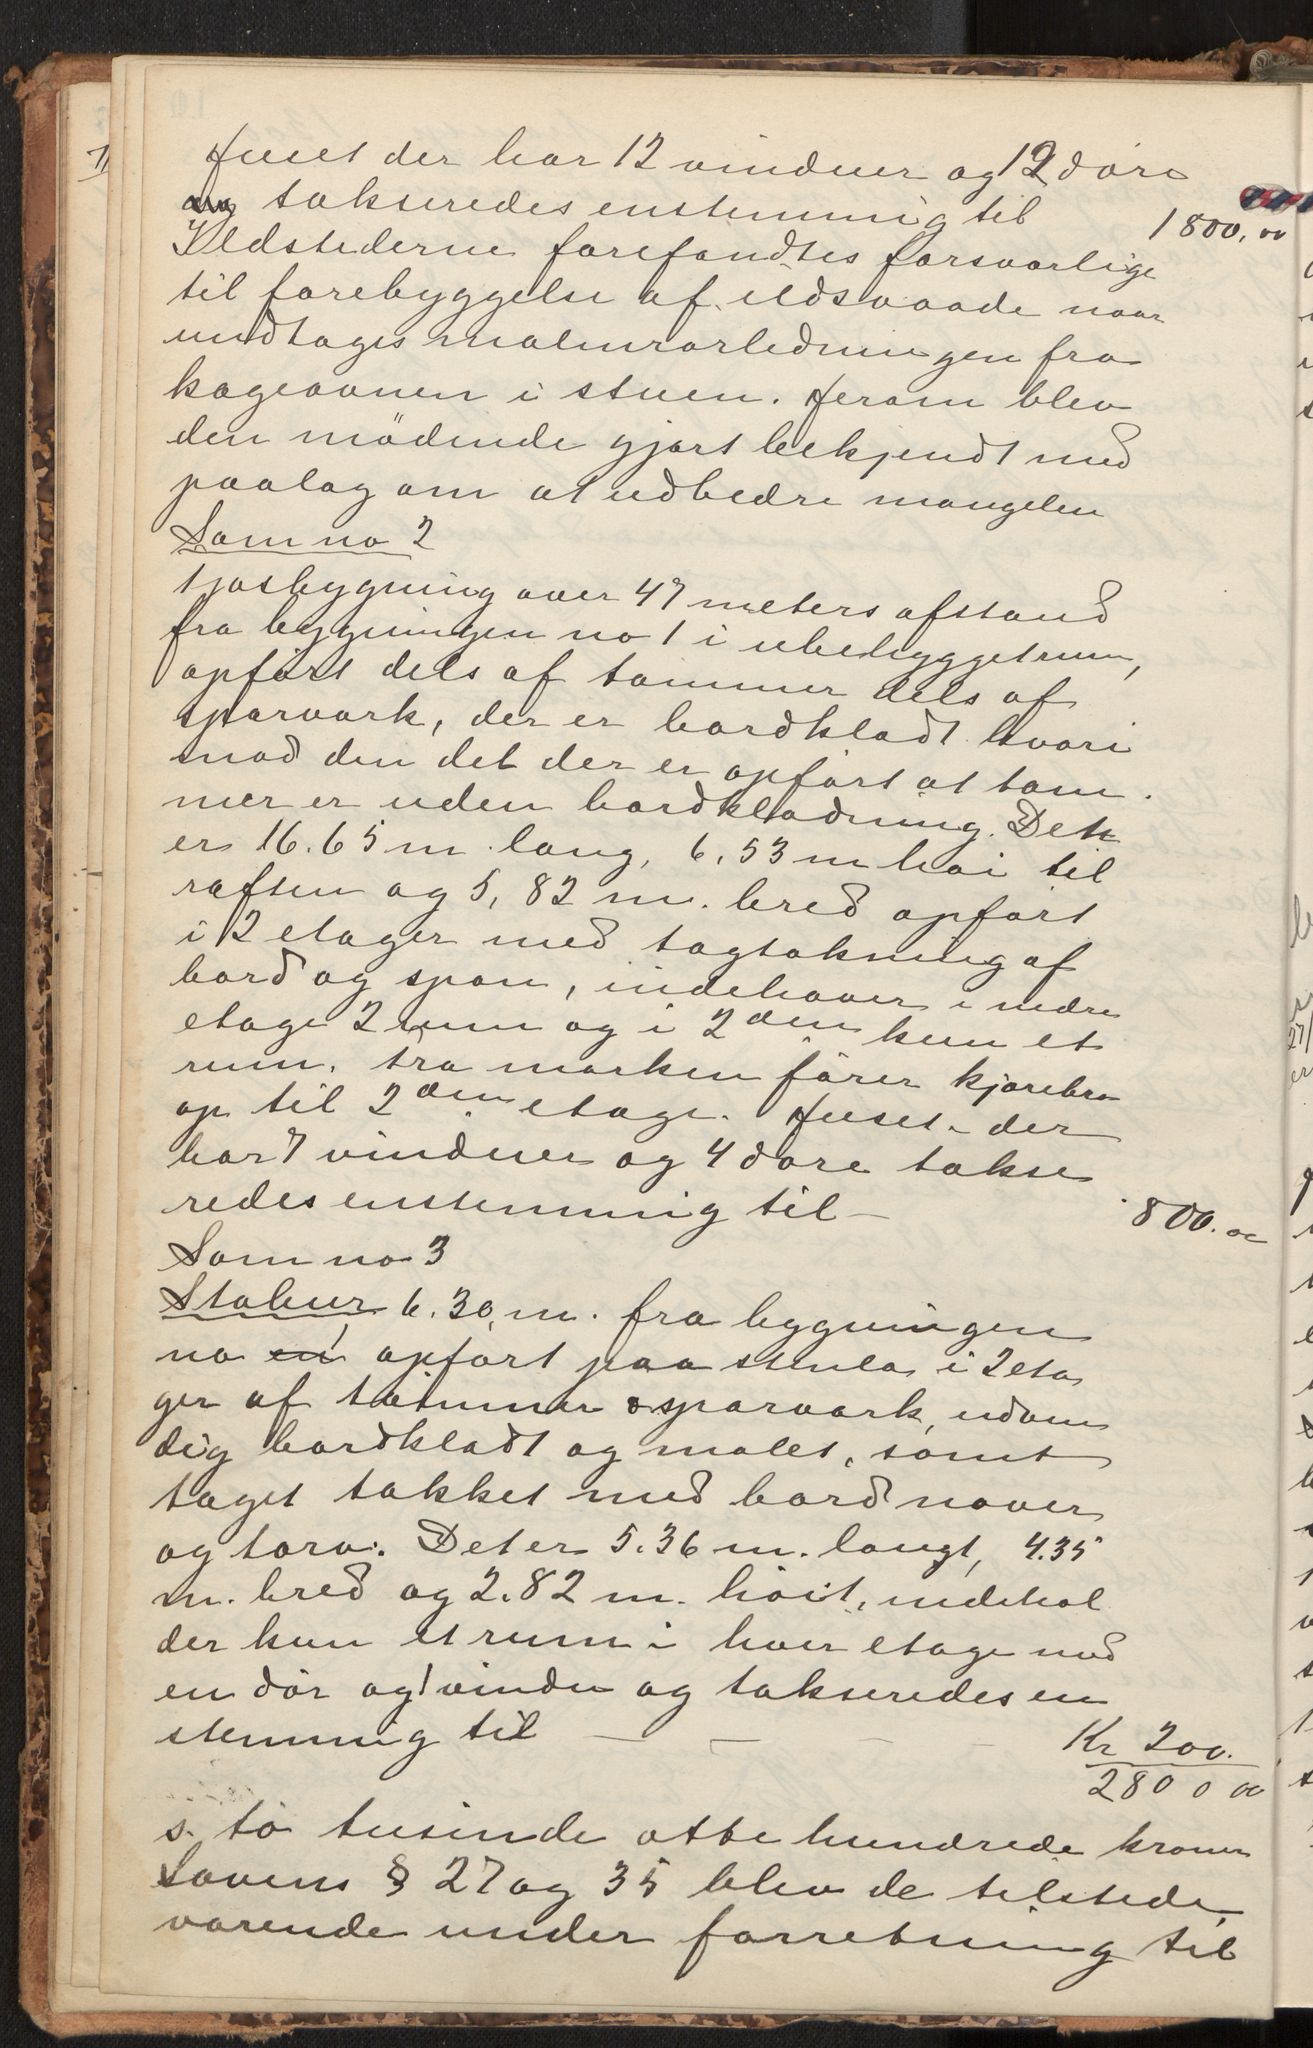 Huset der har 12 vinduer og 12 döre
og takseredes enstemmig til 1800,00
Ildstederne forefandtes forsvarlige
til forebyggelse af ildsvaade naar
undtages malmrørledningen fra
kogeovnen i stuen. Herom blev
den mödende gjort bekjendt med
paalag om at udbedre mangelen
Som no 2
Fjøsbygning over 47 meters afstand
fra bygningen no 1 i ubebygget rum,
opfört dels af tømmer dels af
sparværk, der er bordklædt hvori
mod den del der er opfört at tøm
mer er uden bordklædning. Det
er 16.65 m lang, 6,53 m høi til
raften og 5,82 m. bred opført
i 2 etager med tagtækning af
bord og spon, indehaver i nedre
etage 2 rum og i 2den kun et
rum. Fra marken förer kjørebro
op til 2den etage. Huset der
har 7 vinduer og 4 døre takse
redes enstemmig til — 800.00
Som no 3
Stabur 6.30 m. fra bygningen
no 1 opført paa stenla i 2 eta
ger af tømmer & sparværk, udven
dig bordklædt og malet, samt
taget tækket med bord næver
og torv. Det er 5.36 m. langt, 4.35
m. bred og 2.82 m. höit, indehol
der kun et rum i hver etage med
en dör og 1 vindu og takseredes en
stemmig til — — — — Kr 200.
2800 00
s. to tusinde otte hundrede kroner
Lovens § 27 og 35 blev de tilstede
værende under forretning til